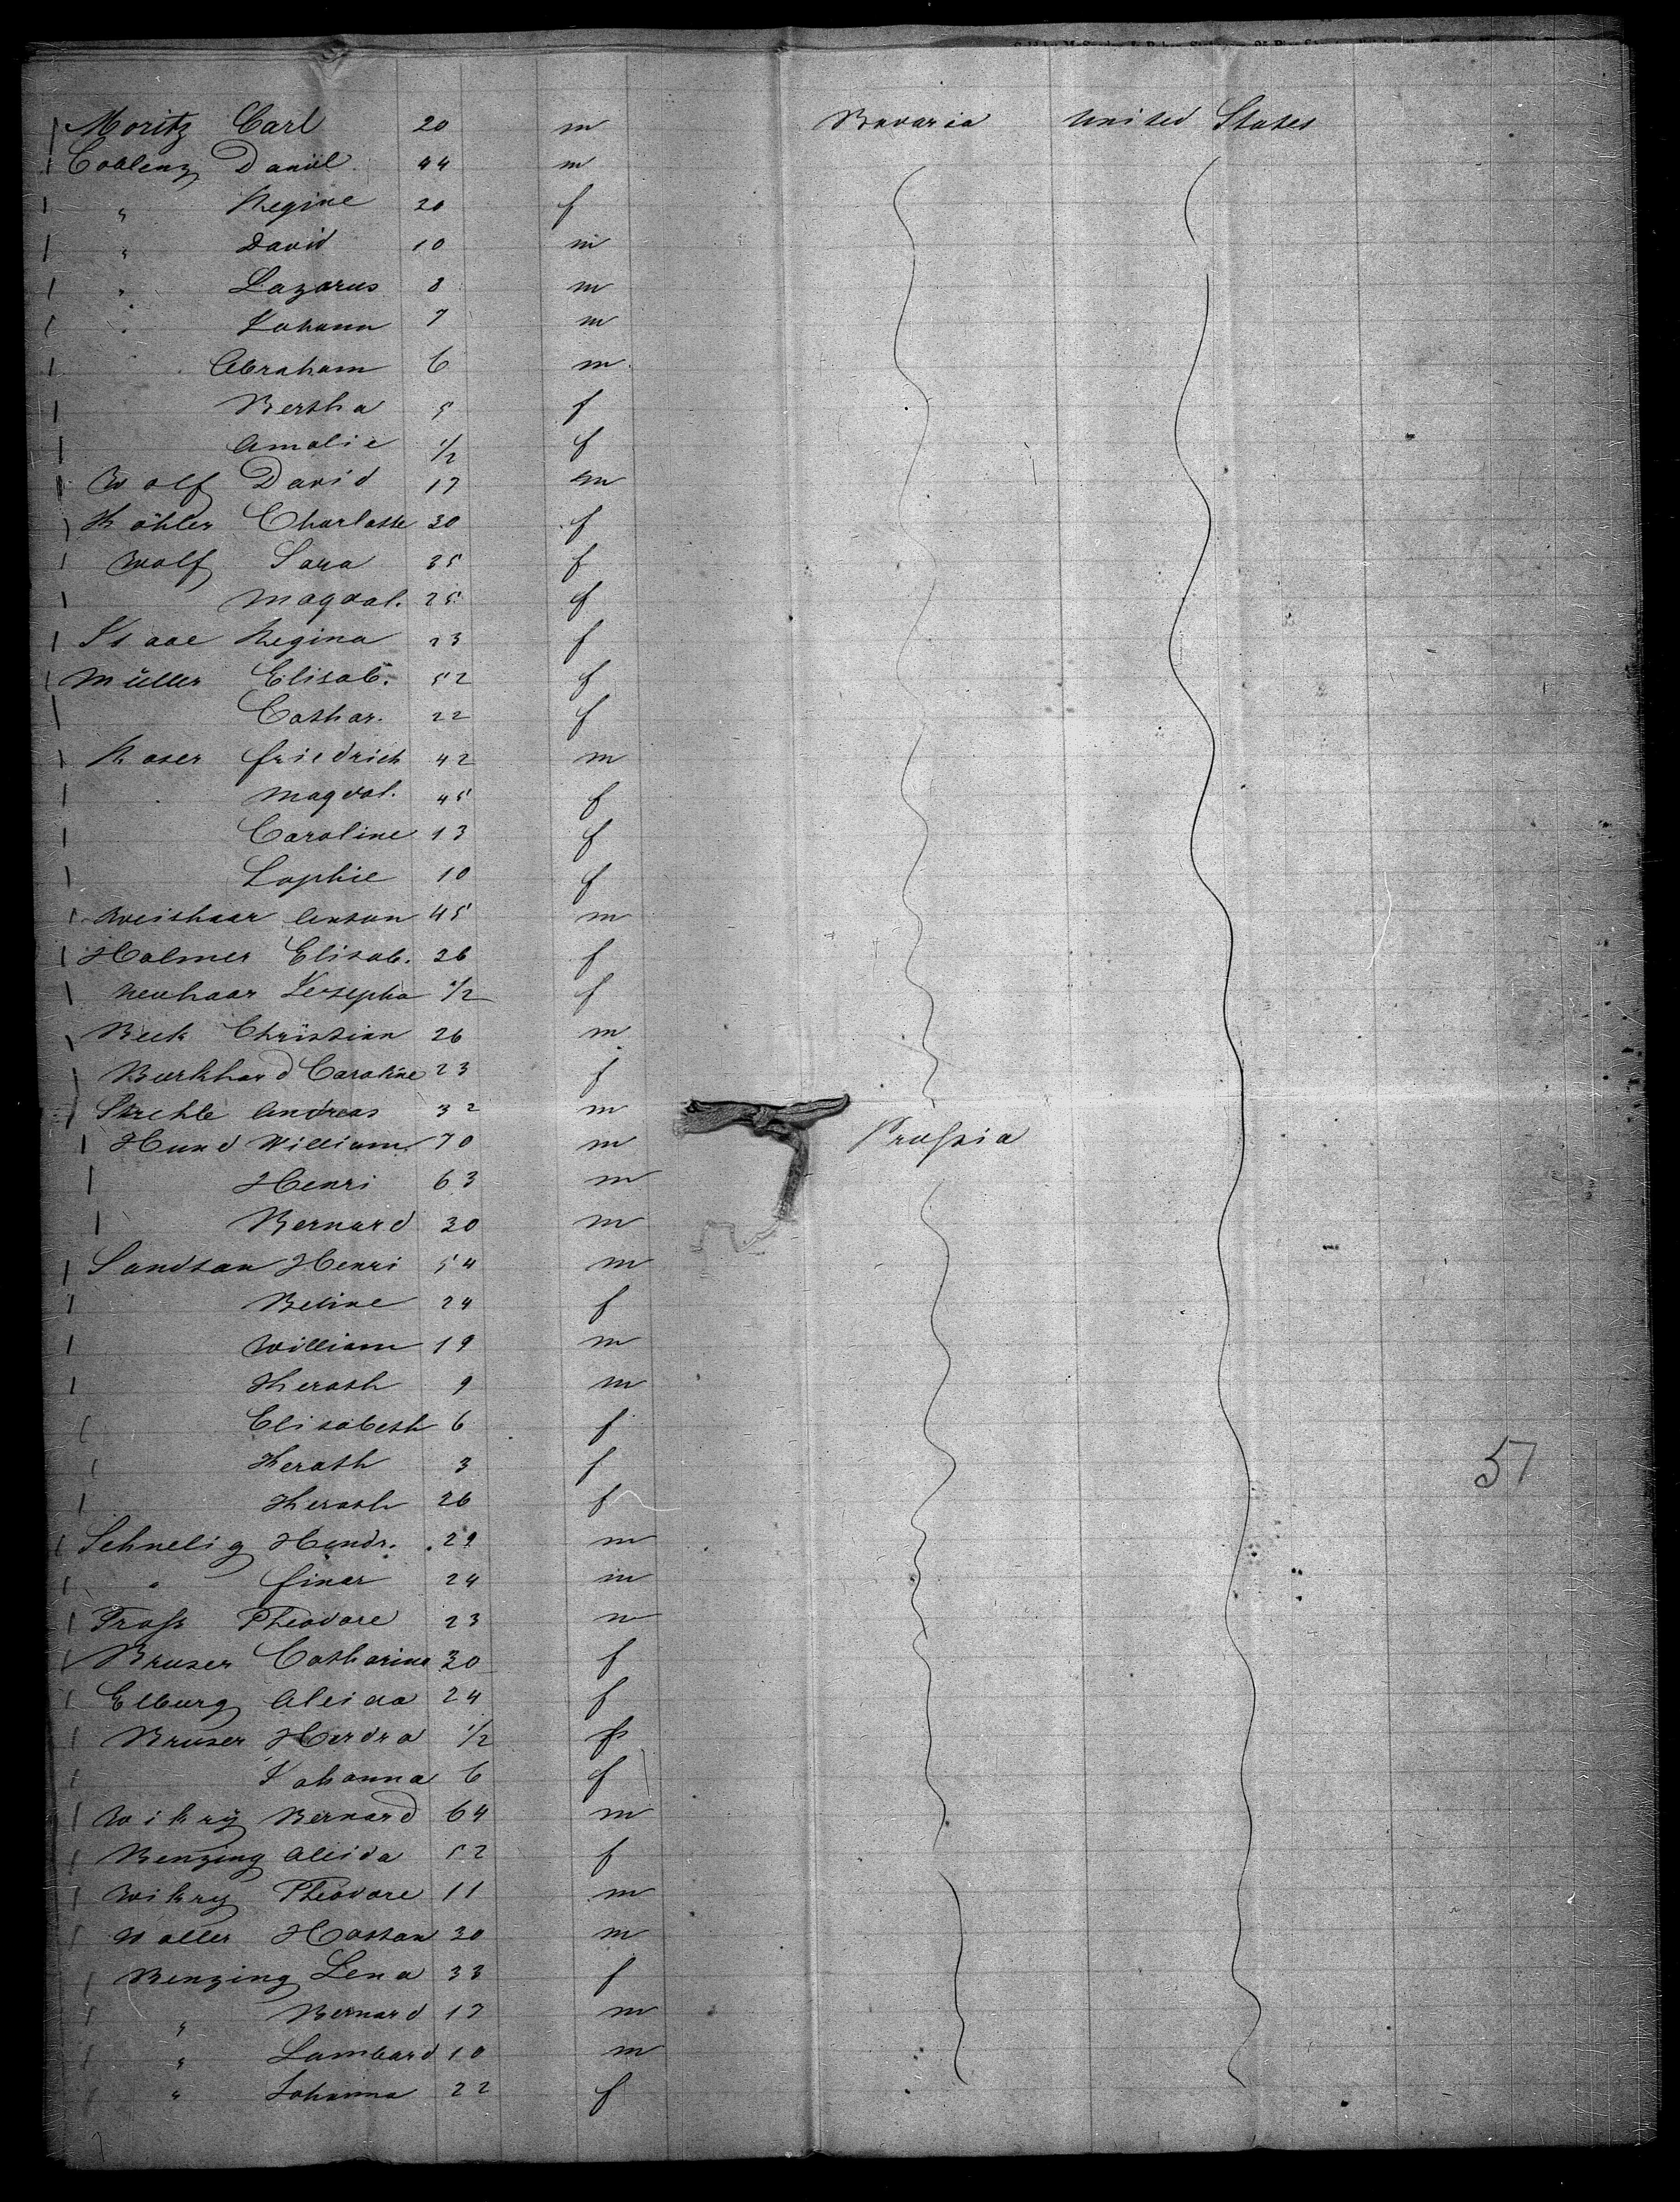 Moritz Carl 20 m Bavaria United States
Coblenz Daniel 44 m
" Regine 20 f
" David 10 m
" Lazarus 8 m
" Johann 7 m
Abraham 6 m
Bertha 5 f
Amalie 1/2 f
Wolf David 17 m
Köhler Charlotte 30 f
Wolf Sara 35 f
Magdal. 25 f
Isaac Regina 23 f
Müller Elisab. 52 f
Cathar. 22 f
Koser Friedrich 42 m
Magdal. 45 f
Caroline 13 f
Sophie 10 f
Weishaar Anton 45 m
Holmer Elisab. 26 f
Neuhaar Josepha 1/2 f
Beck Christian 26 m
Burkhard Caroline 23 f
Strehle Andreas 32 m
Hund William 70 m Prussia
Henri 63 m
Bernard 30 m
Sandtan Henri 54 m
Betine 24 f
William 19 m
9 m
Elisabeth 6 f
3 f
26 f
Schnelig Hendr. 29 m
" 24 m
Theodore 23 m
Bruser Catharina 30 f
Elburg Aleida 24 f
Bruser 1/2 f
Johanna 6 f
Wikry Bernard 64 m
Benzing Aleida 52 f
Wikry Theodore 11 m
30 m
Benzing Lena 33 f
" Bernard 17 m
" Lambard 10 m
" Johanna 22 f
57